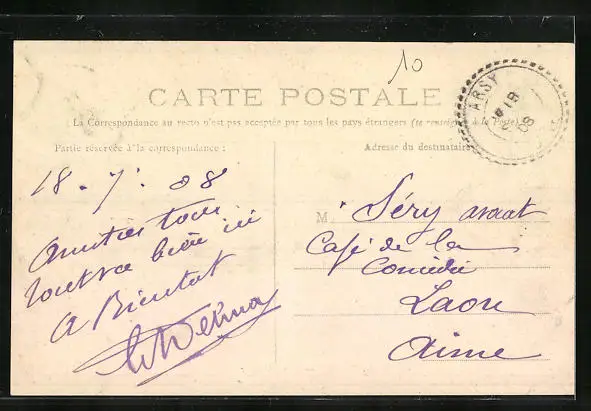 10
CARTE POSTALE
La Correspondance au recto n'est pas acceptée par tous les pays étrangers (se renseigner à la Poste)
Partie réservée à la correspondance :
Adresse du destinataire
ARSY
18
7
08
18 . 7 . 08
Amitiés tous
tout va bien ici
A Bientot
M. Séry avocat
Café de la
Comédie
Laon
Aisne